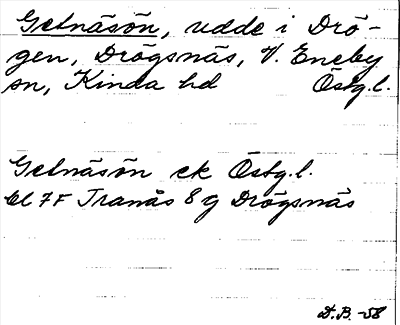 Getnäsön, udde i Drö-
gen, Drögsnäs, V. Eneby
sn, Kinda hd Östg.l.
Getnäsön ek Östg.l.
bl 7F Tranås 8g Drögsnäs
D.B. -58